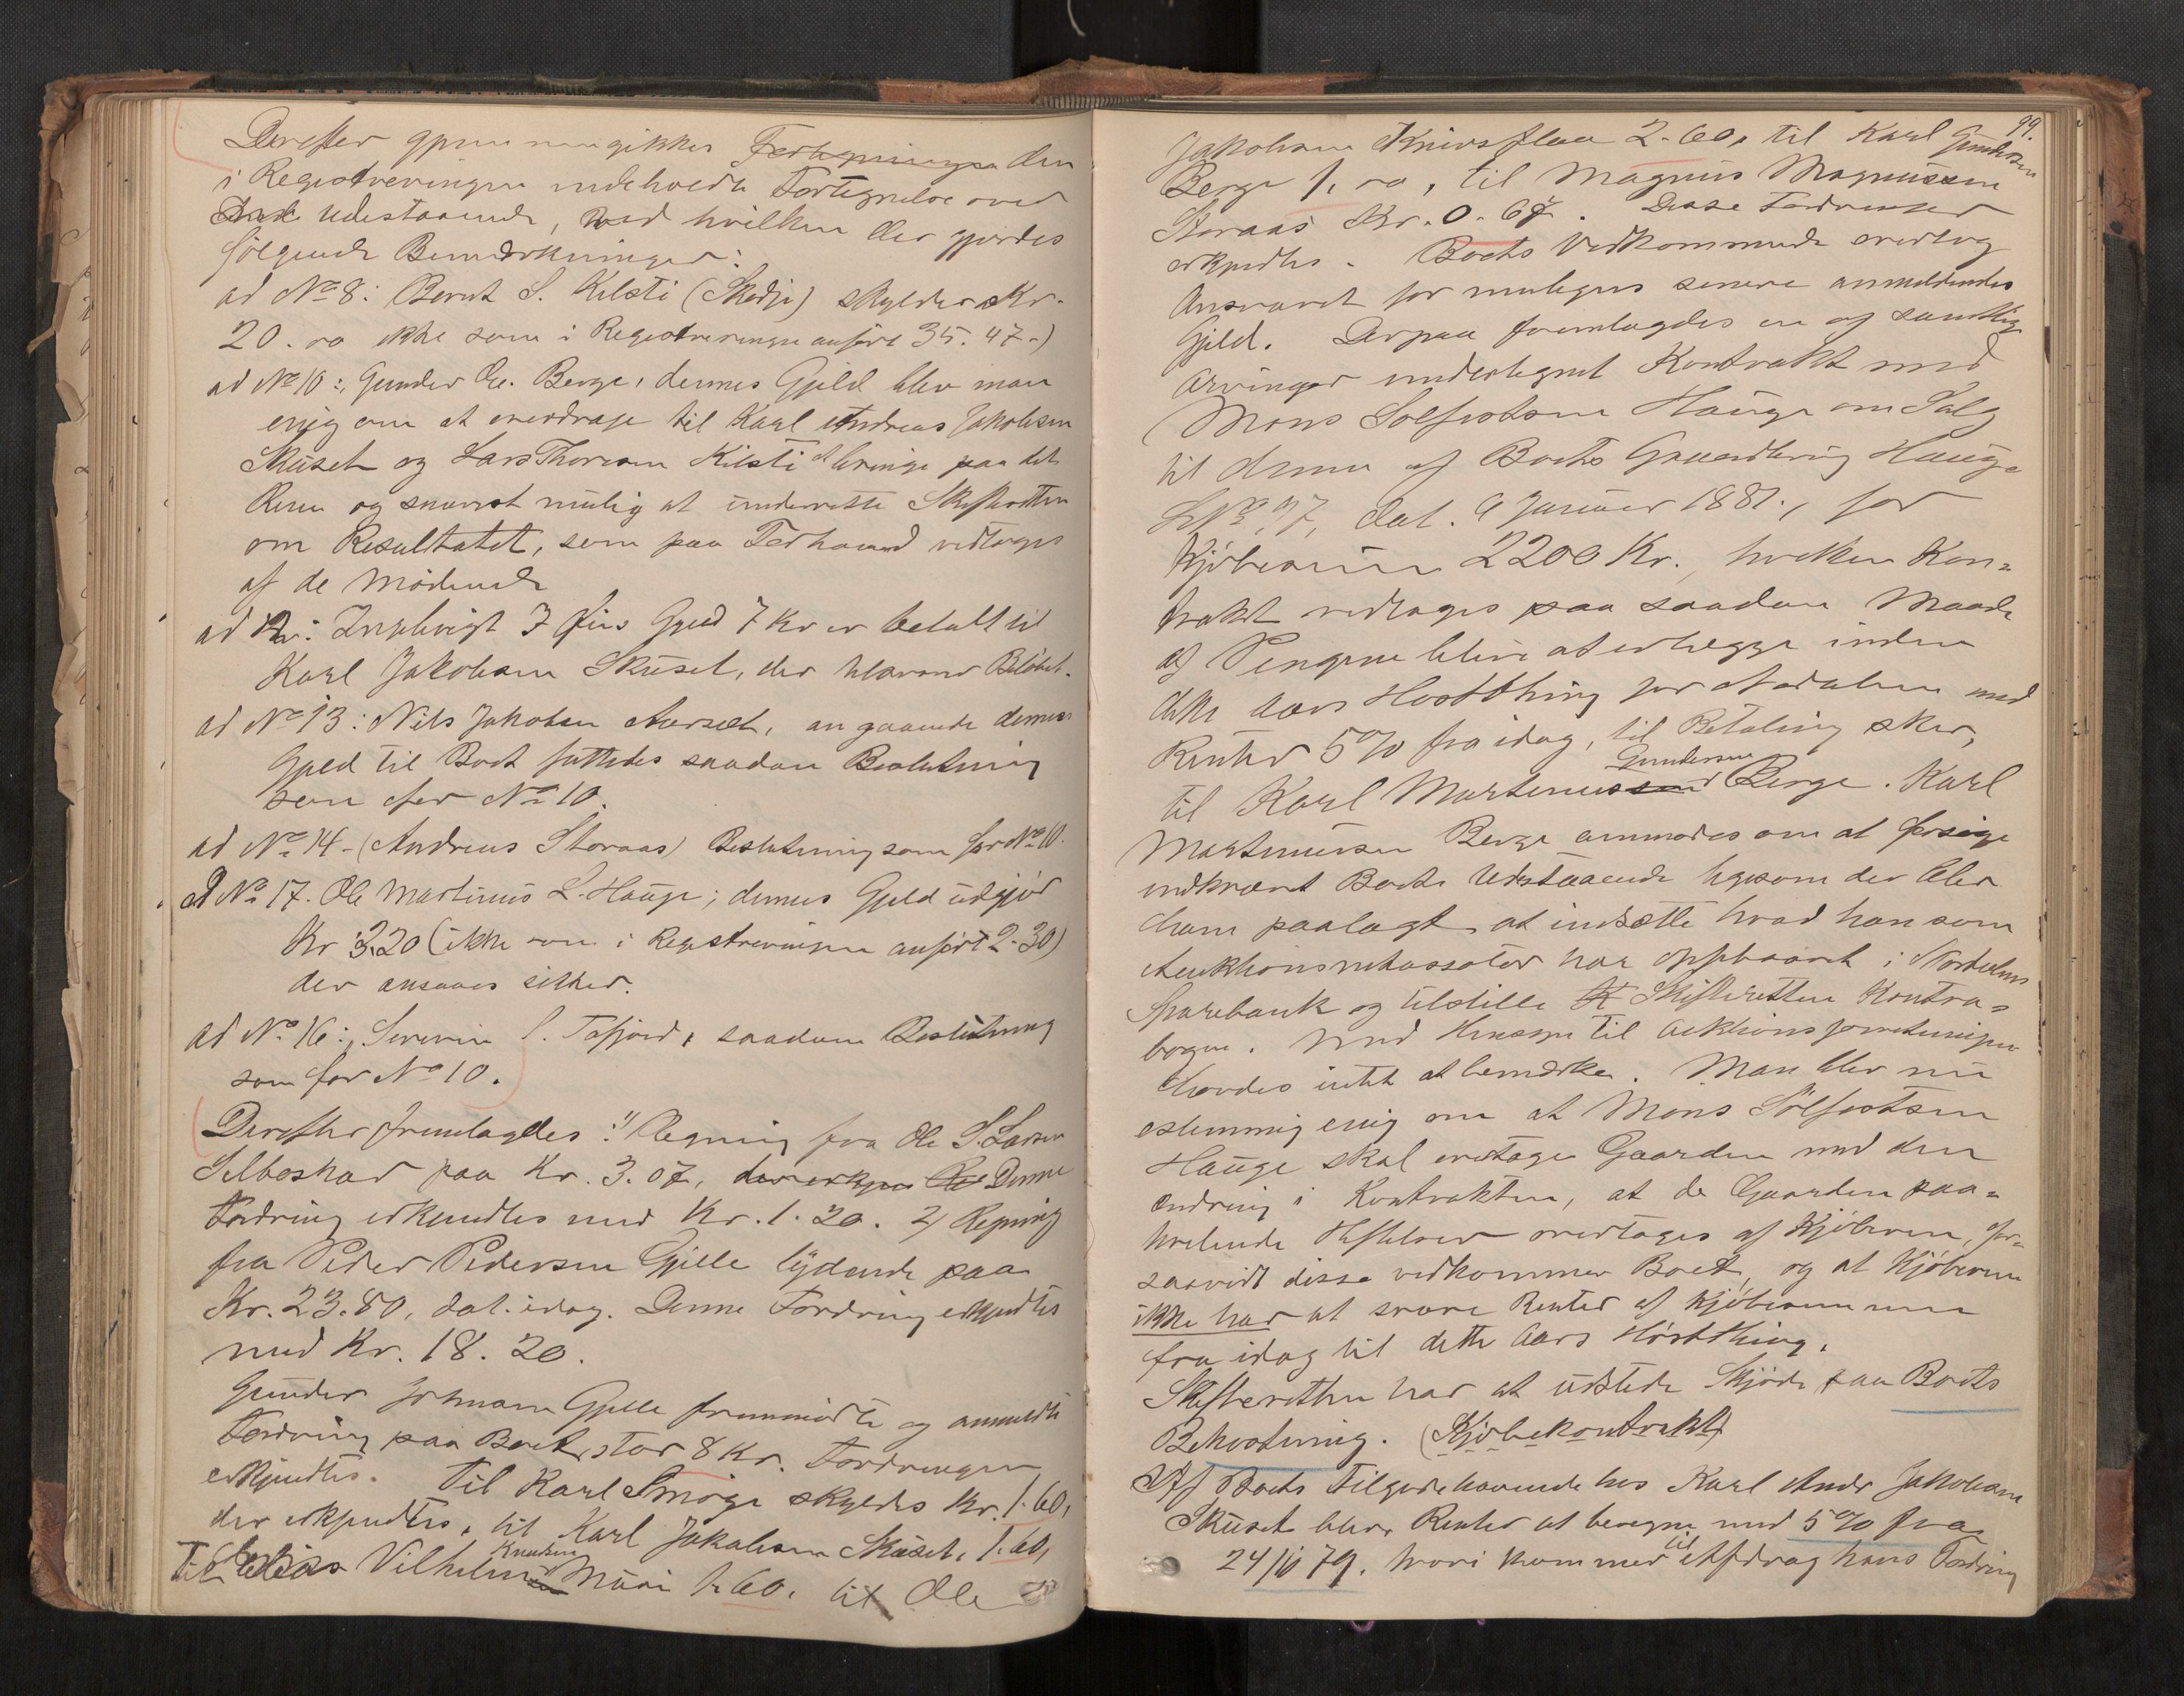 Derefter gjennemgikkes Fortegningen den
i Registreringen indeholdte Fortegnelse over
Boets Udestaaende, ved hvilken der gjordes
følgende Bemærkninger:
ad No 8: Bernt S. Kilsti (Skodje) skylder Kr.
20.00 ikke som i Registreringen anført 35.47.)
ad No 10: Gunder Ole. Berge, dennes Gjeld blev man
enig om at overdrage til Karl Andreas Jakobsen
Skuset og Lars Thoresen Kilsti at bringe paa det
Rene og snarest mulig at underrette Skifteretten
om Resultatet, som paa Forhaand vedtoges
af de Mødende
ad 12: Ingebrigt J Gjens Gjeld 7 Kr er betalt til
Karl Jakobsen Skuset, der tilsvarer Beløbet.
ad No 13: Nils Jakobsen Aarset, angaaende dennes
Gjeld til Boet fattedes saadan Beslutning
som for No 10.
ad No 14 - (Andreas Storaas) Beslutning som for No 10.
ad No 17. Ole Martinus L. Hauge; dennes Gjeld udgjør
Kr 3.20 (ikke som i Registreringen anført 2.30)
der ansaaes sikker.
ad No 16: Severin J. Tafjord, saadan Beslutning
som for No 10.
Derefter fremlagdes: 1) Regning fra Ole S. Larsen
Selboskar paa Kr. 3.07, der erkjen Denne
Fordring erkjendtes med Kr. 1.20. 2) Regning
fra Peder Pedersen Gjelle lydende paa
Kr. 23.80, dat. idag. Denne Fordring erkjendtes
med Kr. 18.20.
Gunder Johnsen Gjelle fremmødte og anmeldte
Fordring paa Boet, stor 8 Kr. Fordringen
erkjendtes. Til Karl Smøge skyldes Kr. 1.60,
der erkjendtes, til Karl Jakobsen Skuset, 1.60,
Knudsen
Til Elias Vilhelm Muri 1.60, til Ole
99.
Jakobsen Knivsflaa 2.60, til Karl Gundersen
Berge 1,00, til Magnus Magnussen
Storaas Kr. 0.67. Disse Fordringer
erkjendtes. Boets Vedkommende overtog
Ansvaret for muligens senere anmeldendes
Gjeld. Derpaa fremlagdes en af samtlige
Arvinger undertegnet Kontrakt med
Mons Solfestsen Hauge om Salg
til denne af Boets Gaardbrug Hauge
LNo 97, dat. 9 Januar 1881, for
Kjøbesum 2200 Kr., hvilken Kon-
trakt vedtoges paa saadan Maade
at Pengene blive at erlægge inden
dette Aars Høstthing for Nordalen med
Renter 5% fra idag, til Betaling sker,
Gundersen
til Karl Martinussen Berge. Karl
Martinussen Berge anmodes om at forsøge
indkrævet Boets Udestaaende ligesom der blev
ham paalagt at indsætte hvad han som
Auktionsinkassator har oppebaaret i Nordalens
Sparebank og tilstille Skifteretten Kontra-
bogen. Med Hensyn til Auktionsforretningen
havdes intet at bemærke. Man blev nu
estemmig enig om at Mons Solfestsen
Hauge skal overtage Gaarden med den
Ændring i Kontrakten, at de Gaarden paa-
hvilende Heftelser overtages af Kjøberen, for-
saavidt disse vedkommer Boet, og at Kjøberen
ikke har at svare Renter af Kjøbesummen
fra idag til dette Aars Høstthing.
Skifteretten har at udstede Skjøde paa Boets
Bekostning. (Kjøbekontrakt)
Af Boets Tilgodehavende hos Karl Andr Jakobsen
Skuset blive Renter at beregne med 5% fra
24/10 79, hvori kommer til Afdrag hans Fordring